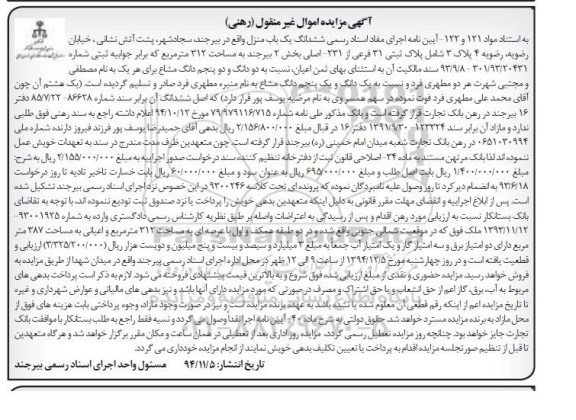 آگهی مزایده اموال غیر منقول (رهنی)
به استناد مواد ۱۲۱ و ۱۲۲- آیین نامه اجرای مفاد اسناد رسمی ششدانگ یک باب منزل واقع در بیرجند، سجادشهر، پشت آتش نشانی ، خیابان
رضویه، رضویه ۴ پلاک ۳ شامل پلاک ثبتی ۳۱ فرعی از ۲۳۱- اصلی بخش ۲ بیرجند به مساحت ۳۱۲ مترمربع که برابر جوابیه ثبتی شماره
۹۳/۹/۸ - ۳۰۱/۹۳/۲۰۴۳۱ سند مالکیت آن به استثنای بهای ثمن اعیان، نسبت به دو دانگ و دو پنجم دانگ مشاع برای هر یک به نام مصطفی
و مجتبی شهرت هر دو مطهری فرد و نسبت به یک دانگ و یک پنجم دانگ مشاع به نام منیره مطهری فرد صادر و تسلیم گردیده است. (یک هشتم آن چون
آقای محمد علی مطهری فرد فوت نموده در سهم همسر وی به نام مرضیه یوسف پور قرار دارد) که اصل ششدانگ آن برابر سند شماره ۸۶۶۲۸- ۸۵/۷/۲۲ دفتر
۱۶ بیرجند در رهن بانک تجارت قرار گرفته است و بانک مذکور طی نامه شماره ۷۹۹۷۹۱۱۶۷۱۵ مورخ ۹۴/۱۰/۱۲ اعلام داشته راجع به سند رهنی فوق طلبی
ندارد و مازاد آن برابر سند ۱۲۳۲۲۴- ۱۳۹۱/۹/۳۰ دفتر ۱۶ در قبال مبلغ ۲/۱۵۶/۸۰۰/۰۰۰ ریال بدهی آقای حمیدرضا یوسف پور فرزند فیروز دارنده شماره ملی
۰۶۵۱۰۳۰۹۹۴ در رهن بانک تجارت شعبه میدان امام خمینی (ره) بیرجند قرار گرفته است چون متعهدین ظرف مدت مندرج در سند به تعهدات خویش عمل
ننموده اند لذا بانک مرتهن مستند به ماده ۳۴- اصلاحی قانون ثبت از دفترخانه تنظیم کننده سند درخواست صدور اجراییه به مبلغ ۲/۱۵۵/۰۰۰/۰۰۰ ریال به شرح:
۱/۴۰۰/۰۰۰/۰۰۰ ریال بابت اصل طلب و مبلغ ۶۹۵/۰۰۰/۰۰۰ ریال به عنوان سود و مبلغ ۶۰/۰۰۰/۰۰۰ ریال بابت خسارت تاخیر تادیه تا روز درخواست
۹۳/۶/۱۸ به انضمام دیرکرد تا روز وصول علیه نامبردگان نموده که پرونده ای تحت کلاسه ۹۳۰۰۲۴۶ در این خصوص نزد اجرای اسناد رسمی بیرجند تشکیل شده
است. پس از ابلاغ اجراییه و انقضای مهلت مقرر قانونی به دلیل اینکه متعهدین بدهی خویش را پرداخت یا نزد صندوق ثبت تودیع ننموده اند، با توجه به تقاضای
بانک بستانکار نسبت به ارزیابی مورد رهن اقدام و پس از رسیدگی به اعتراضات واصله بر طبق نظریه کارشناس رسمی دادگستری وارده به شماره ۹۳۰۰۱۹۲۵-
۱۳۹۳/۱۱/۱۲ ملک فوق که در موقعیت شمالی جنوبی واقع شده و در دو طبقه همکف و اول با عرصه ای به مساحت ۳۱۲ مترمربع و اعیانی به مساحت ۳۸۷ متر
مربع دارای دو امتیاز برق و سه امتیاز گاز و یک امتیاز آب جمعاً به مبلغ ۳ میلیارد و سیصد و بیست و پنج میلیون و دویست هزار ریال (۳/۳۲۵/۲۰۰/۰۰۰) ارزیابی و
قطعیت یافته است و در روز چهارشنبه مورخ ۱۳۹۴/۱۲/۵ از ساعت ۹ الی ۱۲ ظهر در محل اداره اجرای اسناد رسمی بیرجند واقع در میدان شهدا از طریق مزایده به
فروش خواهد رسید. مزایده حضوری و نقدی از مبلغ ارزیابی شده فوق شروع و به بالاترین قیمت پیشنهادی فروخته می شود. لازم به ذکر است پرداخت بدهی های
مربوط به آب، برق، گاز اعم از حق انشعاب و یا حق اشتراک و مصرف در صورتی که مورد مزایده دارای آنها باشد و نیز بدهی های مالیاتی و عوارض شهرداری و غیره
تا تاریخ مزایده اعم از اینکه رقم قطعی آن معلوم شده یا نشده باشد به عهده برنده مزایده است و نیز در صورت وجود مازاد، وجوه پرداختی بابت هزینه های فوق از
محل مازاد به برنده مزایده مسترد خواهد شد. حقوق دولتی به شرح ماده ۴۰ آیین نامه اجرا نقداً وصول می گردد و نسیه فقط راجع به طلب بستانکار با موافقت بانک
تجارت جایز خواهد بود. چنانچه روز مزایده تعطیل رسمی گردد، مزایده روز اداری بعد از تعطیلی در همان ساعت و مکان مقرر برگزار خواهد شد و هرگاه متعهدین
تا قبل از تنظیم صورتجلسه مزایده اقدام به پرداخت یا تعیین تکلیف بدهی خویش نمایند از انجام مزایده خودداری می گردد.
تاریخ انتشار: ۹۴/۱۱/۵ مسئول واحد اجرای اسناد رسمی بیرجند